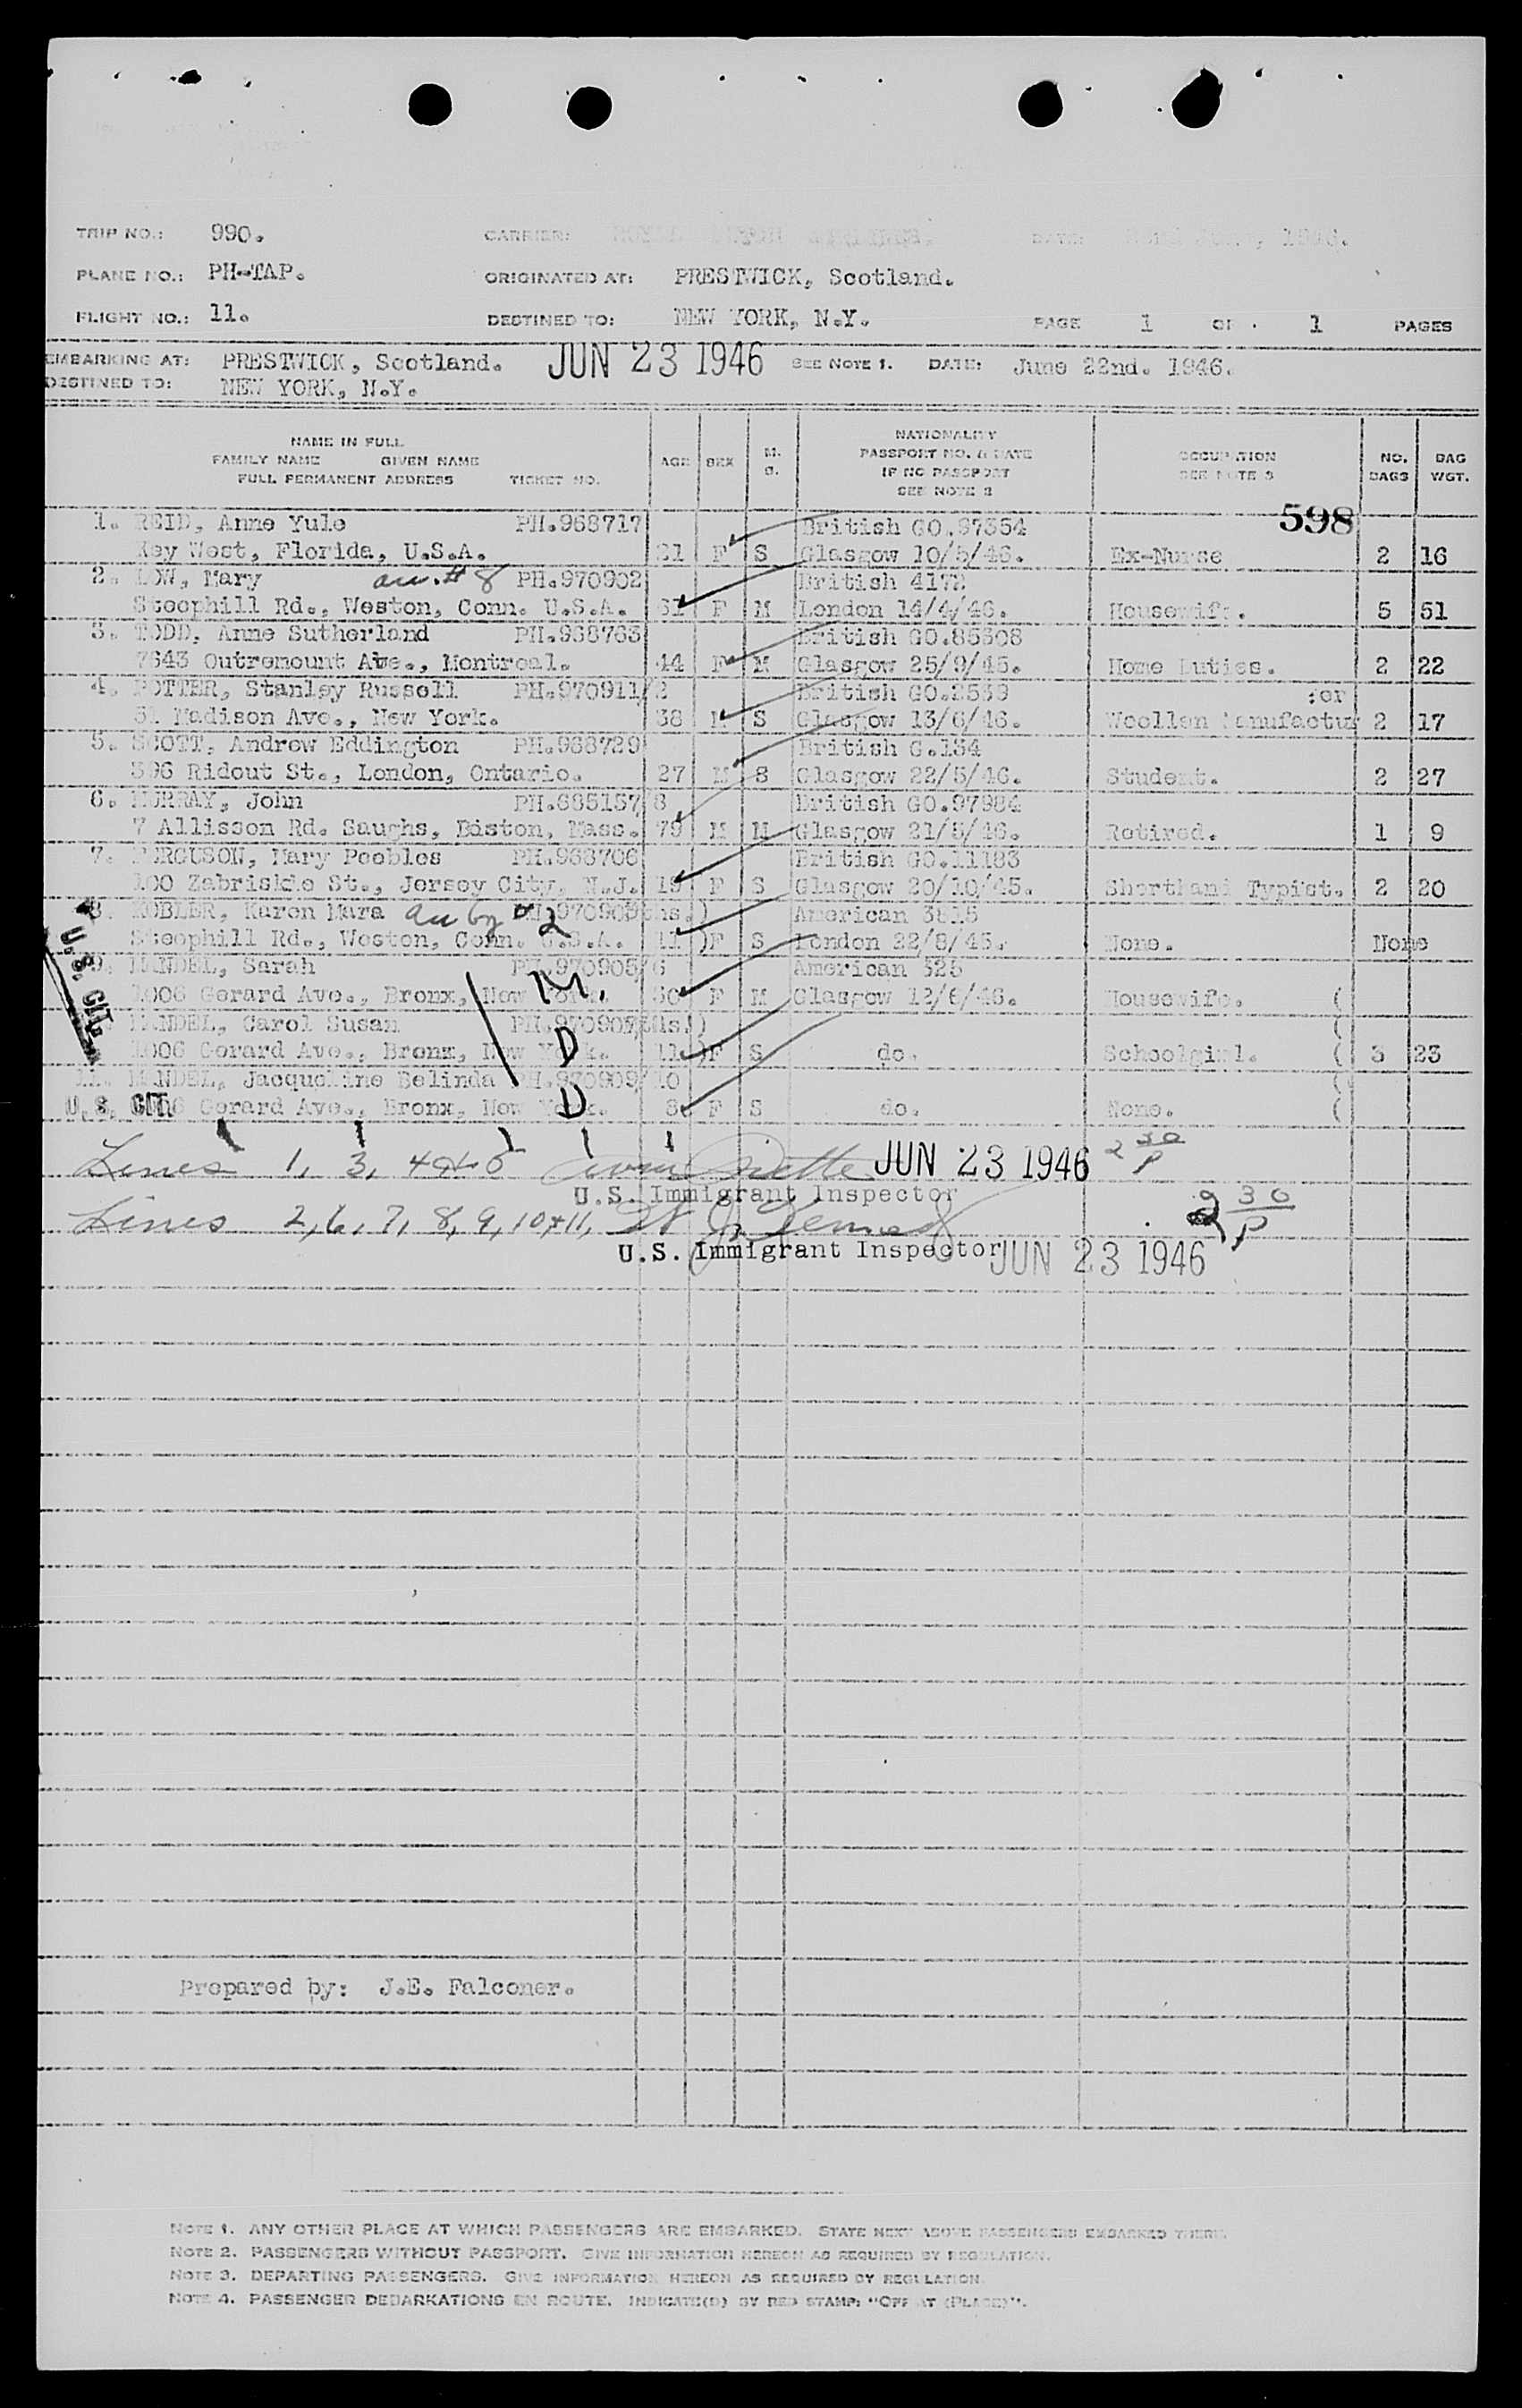 TRIP NO.: 990. CARRIER: ROYAL DUTCH AIRLINES. DATE: 22nd June, 1946.
PLANE NO.: PH-TAP. ORIGINATED AT: PRESTWICK, Scotland.
FLIGHT NO.: 11. DESTINED TO: NEW YORK, N.Y. PAGE 1 OF 1 PAGES
EMBARKING AT: PRESTWICK, Scotland. JUN 23 1946 SEE NOTE 1. DATE: June 22nd. 1946.
DESTINED TO: NEW YORK, N.Y.
NAME IN FULL
FAMILY NAME GIVEN NAME
FULL PERMANENT ADDRESS TICKET NO.
AGE SEX M. S.
NATIONALITY
PASSPORT NO. & DATE
IF NO PASSPORT
SEE NOTE 2
OCCUPATION
SEE NOTE 3
NO. BAGS
BAG WGT.
598
1. REID, Anne Yule PH.968717 British GO.97354
Key West, Florida, U.S.A. 21 F S Glasgow 10/5/46. Ex-Nurse 2 16
2. LOW, Mary # 8 PH.970902 British 4172
Steephill Rd., Weston, Conn. U.S.A. 61 F M London 14/4/46. Housewife. 5 51
3. TODD, Anne Sutherland PH.968763 British GO.85308
7643 Outremount Ave., Montreal. 44 F M Glasgow 25/9/45. Home Duties. 2 22
4. POTTER, Stanley Russell PH.970911/2 British GO.2539 :er
51 Madison Ave., New York. 38 M S Glasgow 13/6/46. Woollen Manufactur 2 17
5. SCOTT, Andrew Eddington PH.968729 British G.134
396 Ridout St., London, Ontario. 27 M S Glasgow 22/5/46. Student. 2 27
6. MURRAY, John PH.685157/8 British GO.97984
7 Allisson Rd. Saughs, Boston, Mass. 79 M M Glasgow 21/5/46. Retired. 1 9
7. FERGUSON, Mary Peebles PH.968706 British GO.11183
100 Zabriskie St., Jersey City, N.J. 19 F S Glasgow 20/10/45. Shorthand Typist. 2 20
8. KOBLER, Karen Mara by # 2 PH.970903 (ms.) American 3815
Steephill Rd., Weston, Conn. U.S.A. 11) F S London 22/8/45. None. None
U.S. CIT.
9. MANDEL, Sarah PH.970905/6 American 325
1006 Gerard Ave., Bronx, New York. M. 30 F M Glasgow 12/6/46. Housewife. (
MANDEL, Carol Susan PH.970907 (ms.) (
1006 Gerard Ave., Bronx, New York. D 11) F S do. Schoolgirl. ( 3 23
11. MANDEL, Jacqueline Belinda PH.970909/10 (
U.S. CIT. 1006 Gerard Ave., Bronx, New York. D 8 F S do. None. (
Lines 1, 3, 4 & 5 JUN 23 1946 2 30 P
U.S. Immigrant Inspector
Lines 2, 6, 7, 8, 9, 10 & 11, 2 30 P
U.S. Immigrant Inspector JUN 23 1946
Prepared by: J.E. Falconer.
NOTE 1. ANY OTHER PLACE AT WHICH PASSENGERS ARE EMBARKED. STATE NEXT ABOVE PASSENGERS EMBARKED THERE.
NOTE 2. PASSENGERS WITHOUT PASSPORT. GIVE INFORMATION HEREON AS REQUIRED BY REGULATION.
NOTE 3. DEPARTING PASSENGERS. GIVE INFORMATION HEREON AS REQUIRED BY REGULATION.
NOTE 4. PASSENGER DEBARKATIONS EN ROUTE. INDICATE(D) BY RED STAMP: "OFF AT (PLACE)".